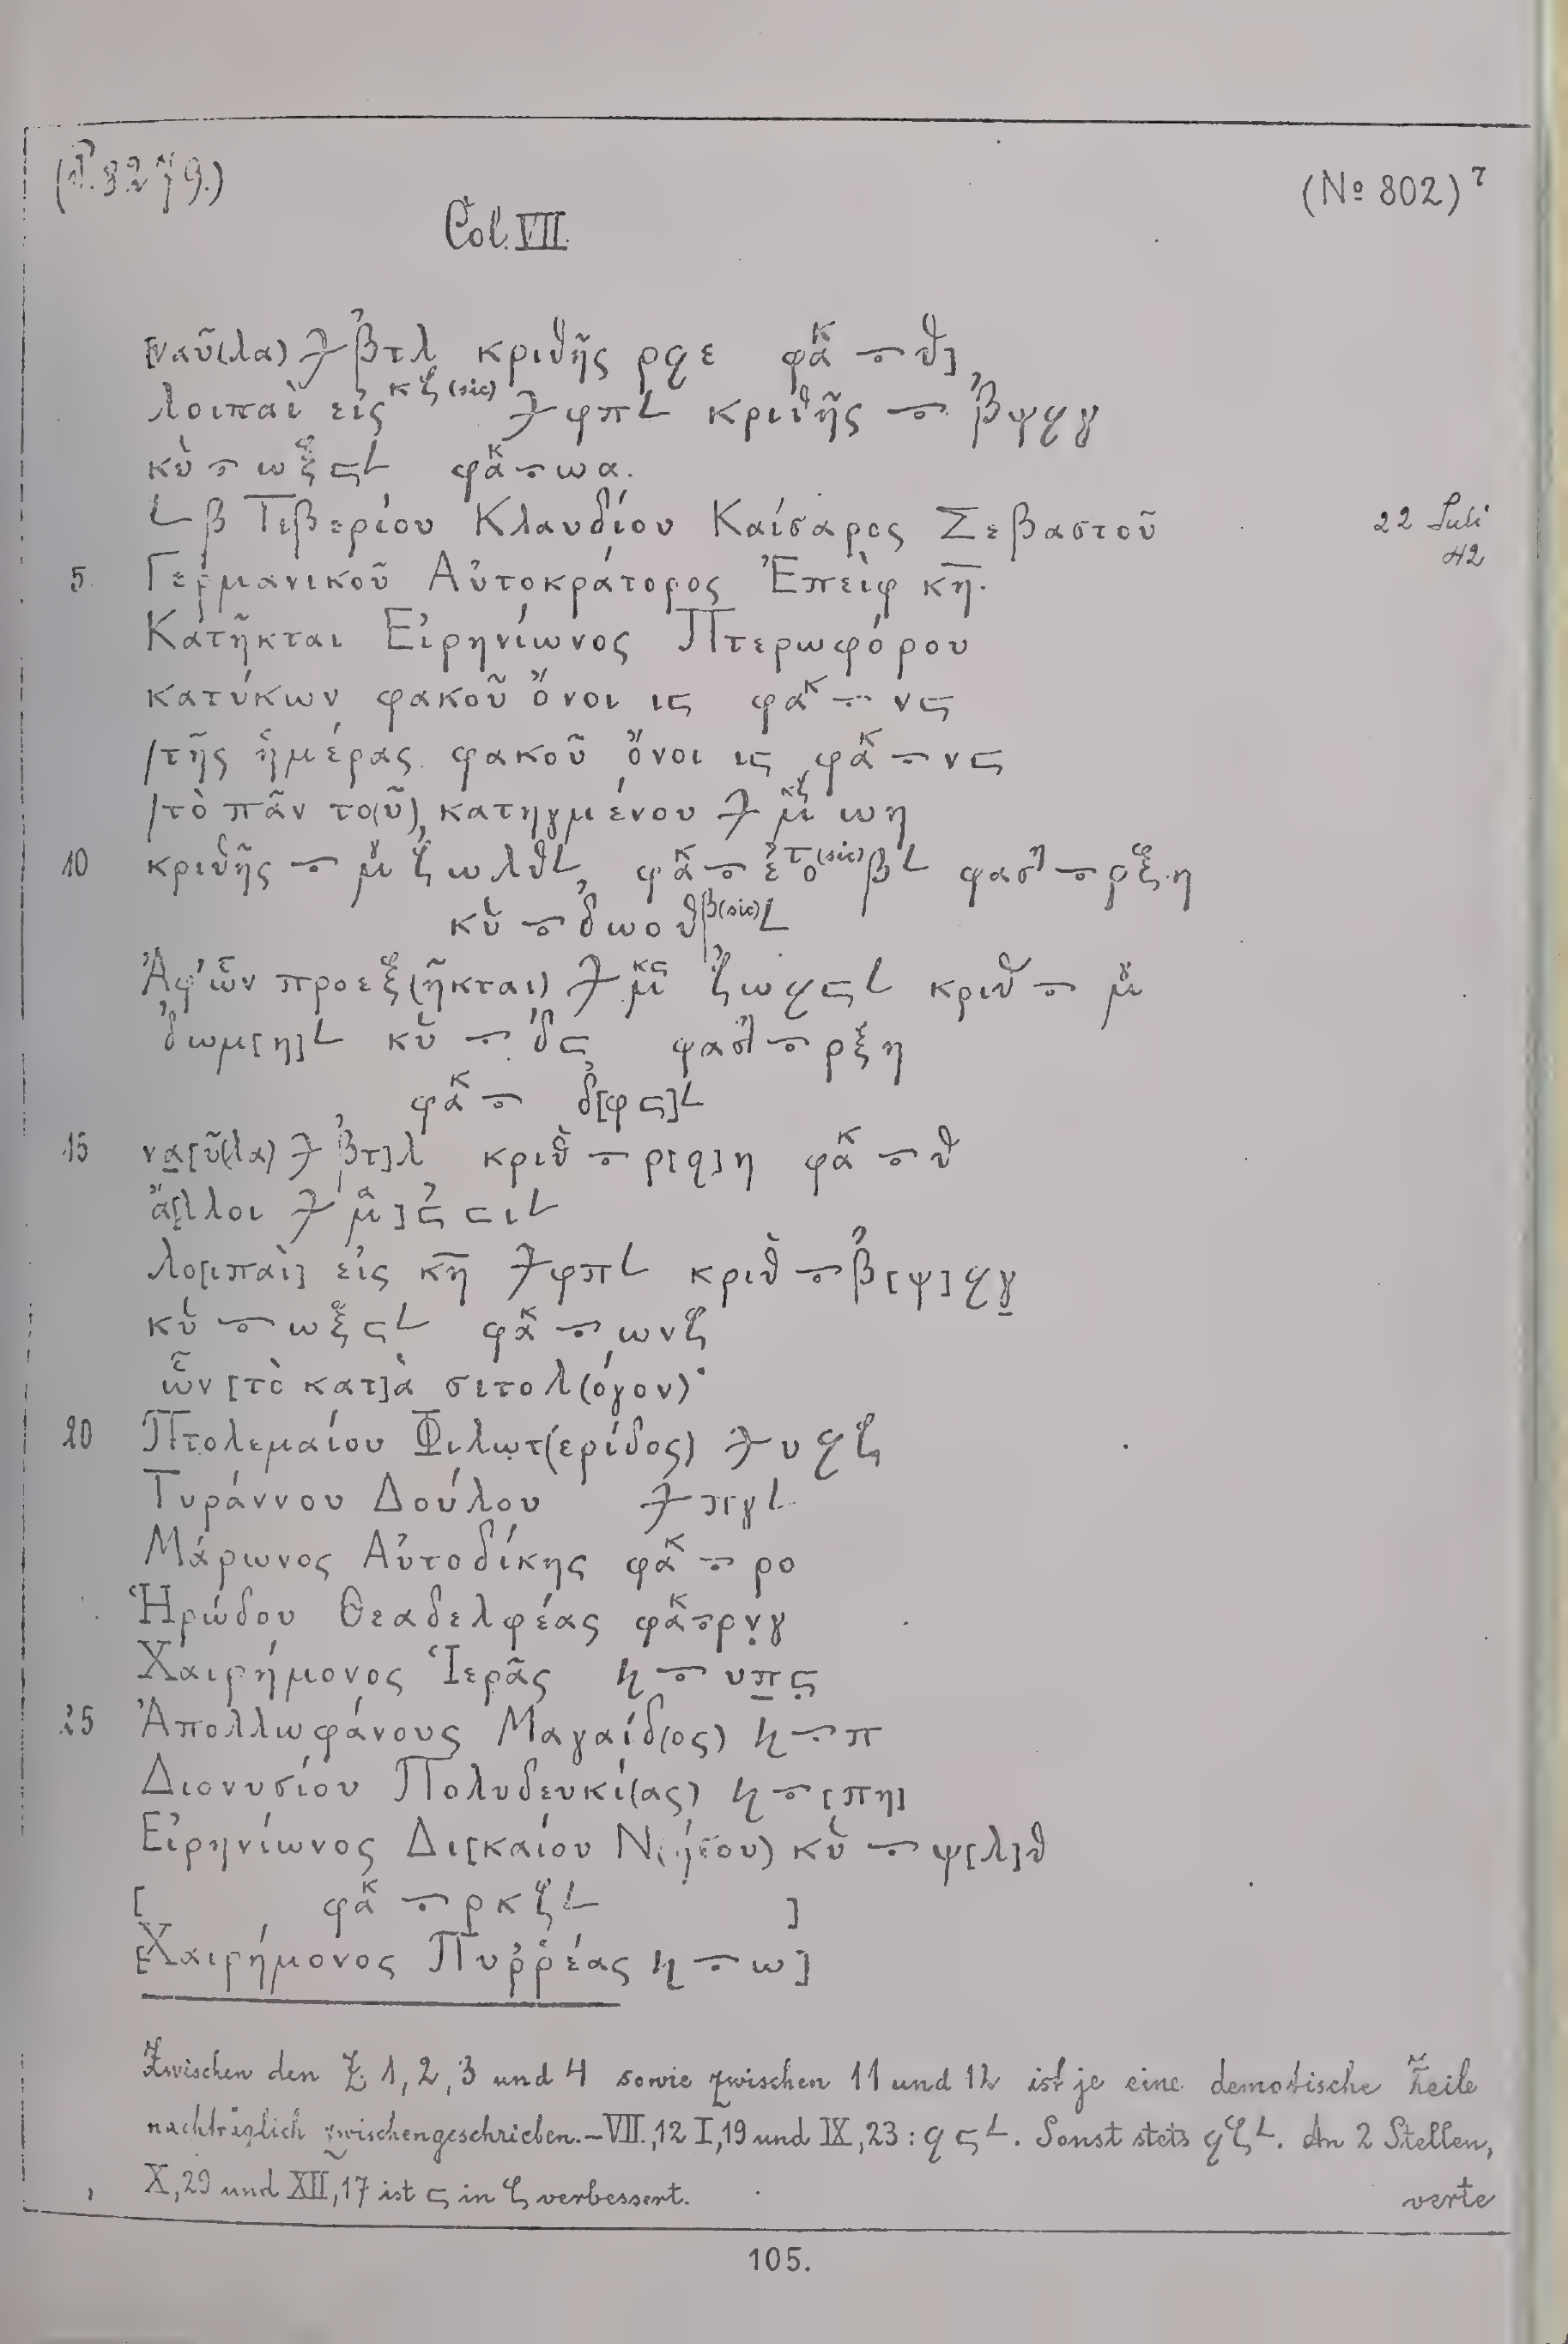 (P. 8279.)
(№ 802) 7
Col. VII.
[ναῦ(λα) 𐅶 ͵βτλ κριθῆς ρϟε φακ ⦵ θ]
λοιπαὶ εἰς κζ (sic) 𐅶 φπ𐅵 κριθῆς ⦵ ͵βψϟγ
κυ ⦵ ωξϛ𐅵 φακ ⦵ ωα.
𐅹 β Τιβερίου Κλαυδίου Καίσαρος Σεβαστοῦ
22 Juli 42
5. Γερμανικοῦ Αὐτοκράτορος Ἐπεὶφ κη.
Κατῆκται Εἰρηνίωνος Πτερωφόρου
κατύκων φακοῦ ὄνοι ιϛ φακ ⦵ νϛ
/τῆς ἡμέρας φακοῦ ὄνοι ιϛ φακ ⦵ νϛ
/τὸ πᾶν το(ῦ) κατηγμένου 𐅶 μκζ ωη
10 κριθῆς ⦵ μγ ζωλθ𐅵 φακ ⦵ ͵ετο(sic)β𐅵 φασηλ ⦵ ρξη
κυ ⦵ ͵δωοθβ(sic)𐅵
Ἀφ’ ὧν προεξ(ῆκται) 𐅶 μκϛ ͵ζωϟϛ𐅵 κριθ ⦵ μγ
͵δωμ[η]𐅵 κυ ⦵ ͵δϛ φασηλ ⦵ ρξη
φακ ⦵ ͵δ[φϛ]𐅵
15 να[ῦ(λα) 𐅶 ͵βτ]λ κριθ ⦵ ρ[ϟ]η φακ ⦵ θ
ἄ[λλοι 𐅶 μα] ͵ϛϛι𐅵
λο[ιπαὶ] εἰς κη 𐅶 φπ𐅵 κριθ ⦵ ͵β[ψ]ϟγ
κυ ⦵ ωξϛ𐅵 φακ ⦵ ωνζ
ὧν [τὸ κατ]ὰ σιτολ(όγον)·
20 Πτολεμαίου Φιλωτ(ερίδος) 𐅶 υϟζ
Τυράννου Δούλου 𐅶 πγ𐅵
Μάρωνος Αὐτοδίκης φακ ⦵ ρο
Ἡρώδου Θεαδελφέας φακ ⦵ ρνγ
Χαιρήμονος Ἱερᾶς κ ⦵ υπϛ
25 Ἀπολλωφάνους Μαγαίδ(ος) κ ⦵ π
Διονυσίου Πολυδευκί(ας) κ ⦵ [πη]
Εἰρηνίωνος Δι[καίου Ν(ήσου) κυ ⦵ ψ[λ]θ
[ φακ ⦵ ρκζ𐅵 ]
[Χαιρήμονος Πυῤῥέας κ ⦵ ω]
Zwischen den Z. 1, 2, 3 und 4 sowie zwischen 11 und 12 ist je eine demotische Zeile
nachträglich zwischengeschrieben. – VII, 12 I, 19 und IX, 23: ϟϛ𐅵. Sonst stets ϟζ𐅵. An 2 Stellen,
X, 29 und XII, 17 ist ϛ in ζ verbessert.
verte
105.